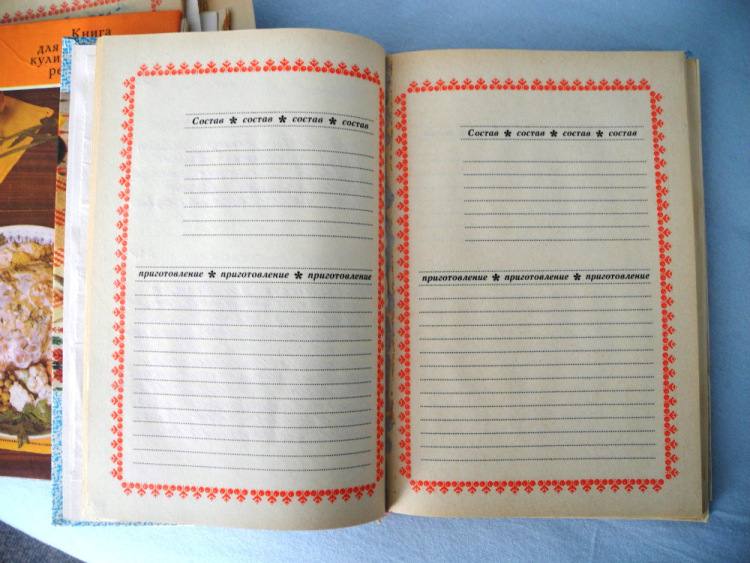 Книга
для
Состав * состав * состав * состав
приготовление * приготовление * приготовление
Состав * состав * состав * состав
приготовление * приготовление * приготовление